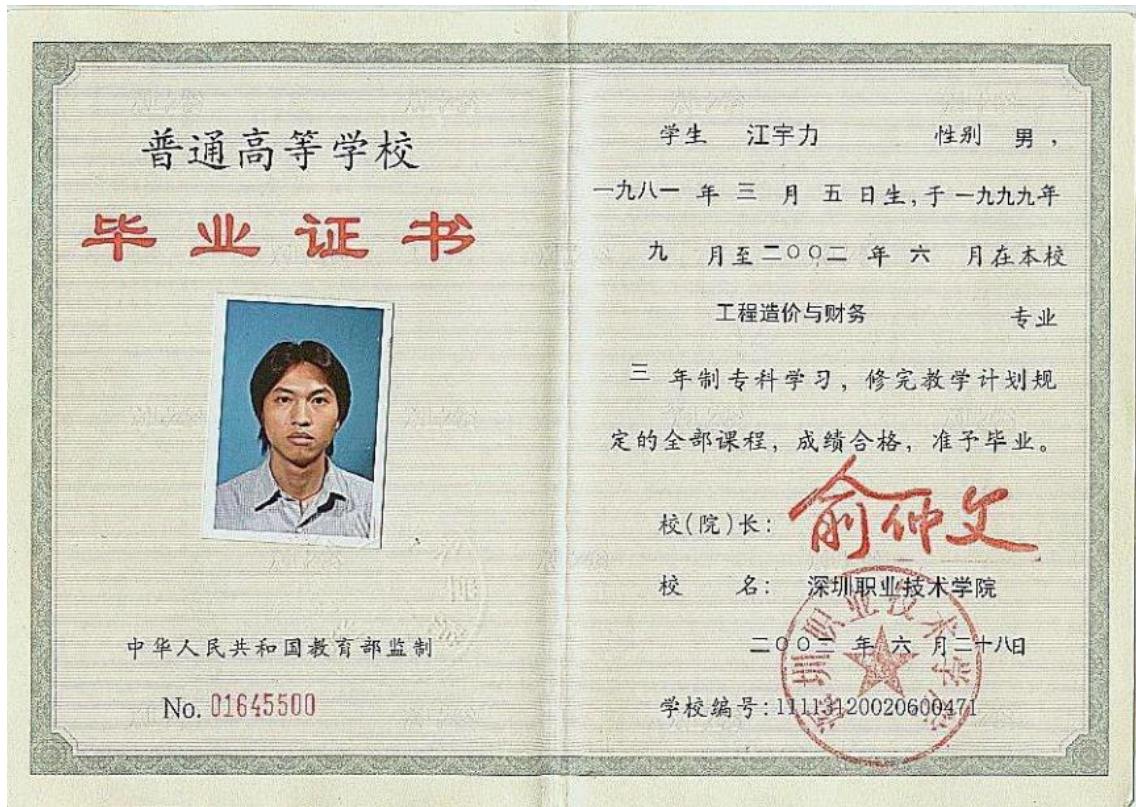 普通高等学校
毕业证书
中华人民共和国教育部监制
No. 01645500
学生 江宇力 性别 男，
一九八一 年 三 月 五 日生，于 一九九九年
九 月至二〇〇二 年 六 月在本校
工程造价与财务 专业
三 年制专科学习，修完教学计划规
定的全部课程，成绩合格，准予毕业。
校(院)长： 俞仲文
校 名： 深圳职业技术学院
二〇〇二 年 六 月二十八日
学校编号：11113120020600471
深圳职业技术学院